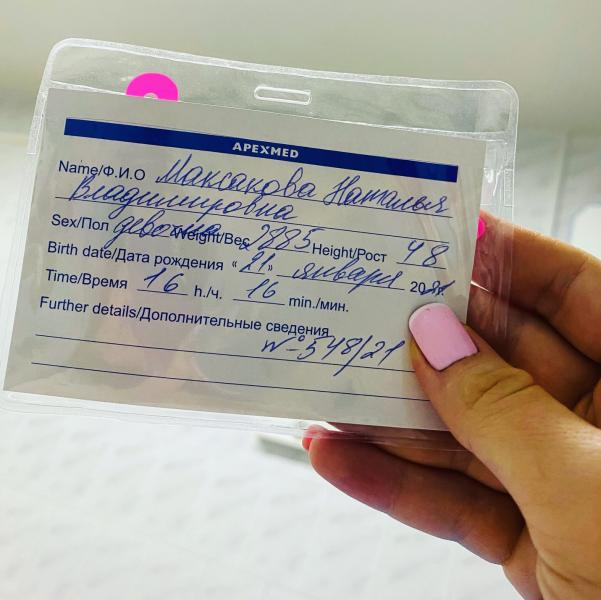 APEXMED
Name/Ф.И.О Максакова Наталья
Владимировна
Sex/Пол девочка Weight/Вес 2885 Height/Рост 48
Birth date/Дата рождения «21» января 2021
Time/Время 16 h./ч. 16 min./мин.
Further details/Дополнительные сведения
№548/21